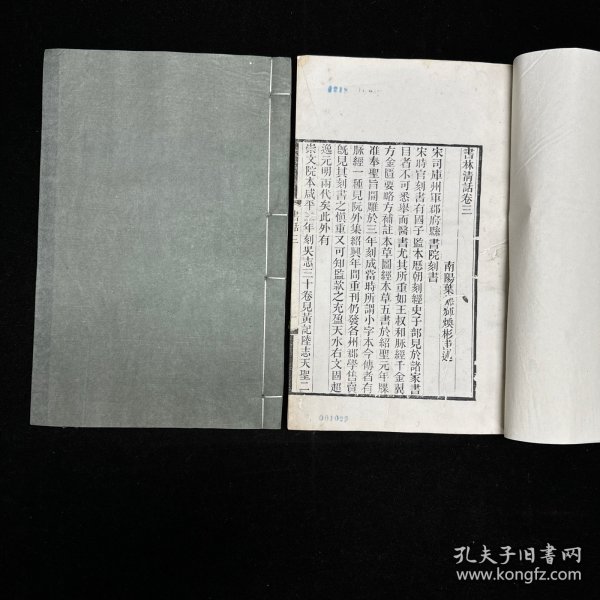 書林清話卷三
南陽葉德輝煥彬
宋司庫州軍郡府縣書院刻書
宋時官刻書有國子監本歷朝刻經史子部見於諸家書
目者不可悉舉而醫書尤其所重如王叔和脈經千金翼
方金匱要略方補註本草圖經本草五書於紹聖元年牒
准奉聖旨開雕於三年刻成當時所謂小字本今傳者有
脈經一種見阮外集紹興年間重刊仍發各州郡學售賣
既見其刻書之愼重又可知監款之充盈天水右文固超
逸元明兩代矣此外有
崇文院本咸平三年刻吳志三十卷見黃記陸志天聖二
書話三
001029
孔夫子旧书网
www.kongfz.com